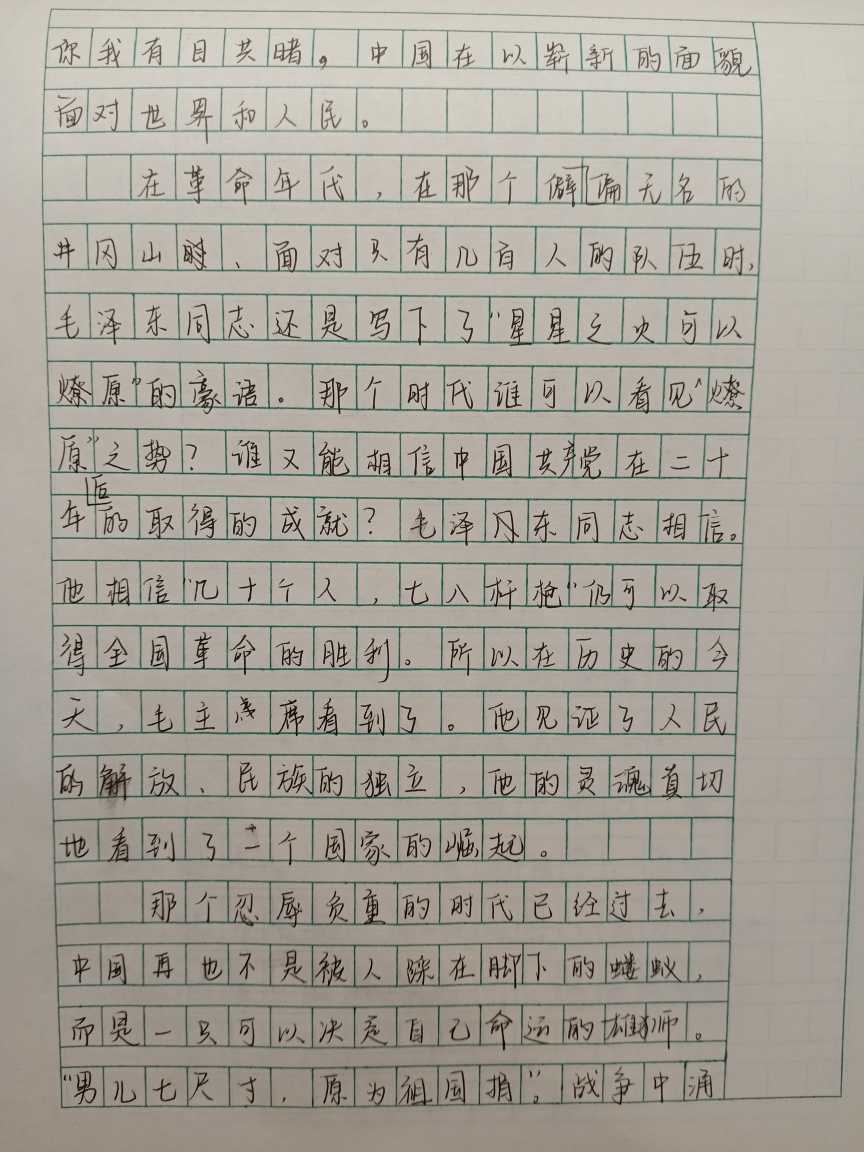 你我有目共睹。中国在以崭新的面貌
面对世界和人民。
在革命年代，在那个僻偏无名的
井冈山时、面对只有几百人的队伍时，
毛泽东同志还是写下了“星星之火可以
燎原”的豪语。那个时代谁可以看见“燎
原”之势？谁又能相信中国共产党在二十
年后的取得的成就？毛泽东同志相信。
他相信“几十个人，七八杆枪”仍可以取
得全国革命的胜利。所以在历史的今
天，毛主席看到了。他见证了人民
的解放、民族的独立，他的灵魂真切
地看到了一个国家的崛起。
那个忍辱负重的时代已经过去，
中国再也不是被人踩在脚下的蝼蚁，
而是一只可以决定自己命运的雄狮。
“男儿七尺寸，原为祖国捐”。战争中涌